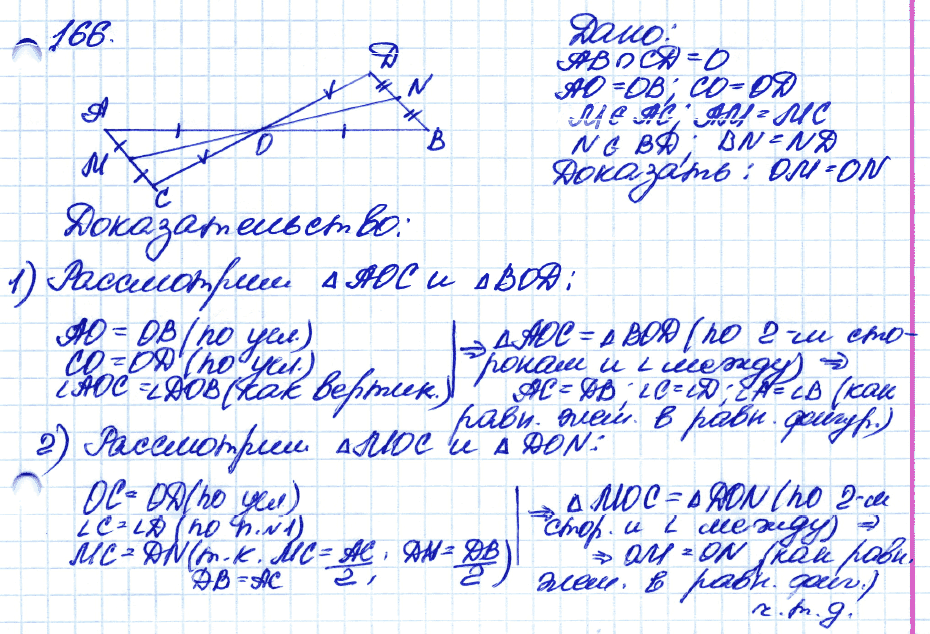 166.
D
N
A
M
O
B
C
Дано:
AB ∩ CD = O
AO = OB; CO = OD
M ∈ AC; AM = MC
N ∈ BD; BN = ND
Доказать: OM = ON
Доказательство:
1) Рассмотрим △AOC и △BOD:
AO = OB (по усл.)
CO = OD (по усл.)
∠AOC = ∠DOB (как вертик.)
⇒ △AOC = △BOD (по 2-м сто-
ронам и ∠ между) ⇒
AC = DB; ∠C = ∠D; ∠A = ∠B (как
равн. элем. в равн. фигур.)
2) Рассмотрим △MOC и △DON:
OC = OD (по усл)
∠C = ∠D (по п.№1)
MC = DN (т.к. MC = AC/2; DN = DB/2)
DB = AC
⇒ △MOC = △DON (по 2-м
стор. и ∠ между) ⇒
⇒ OM = ON (как равн.
элем. в равн. фиг.)
ч.т.д.